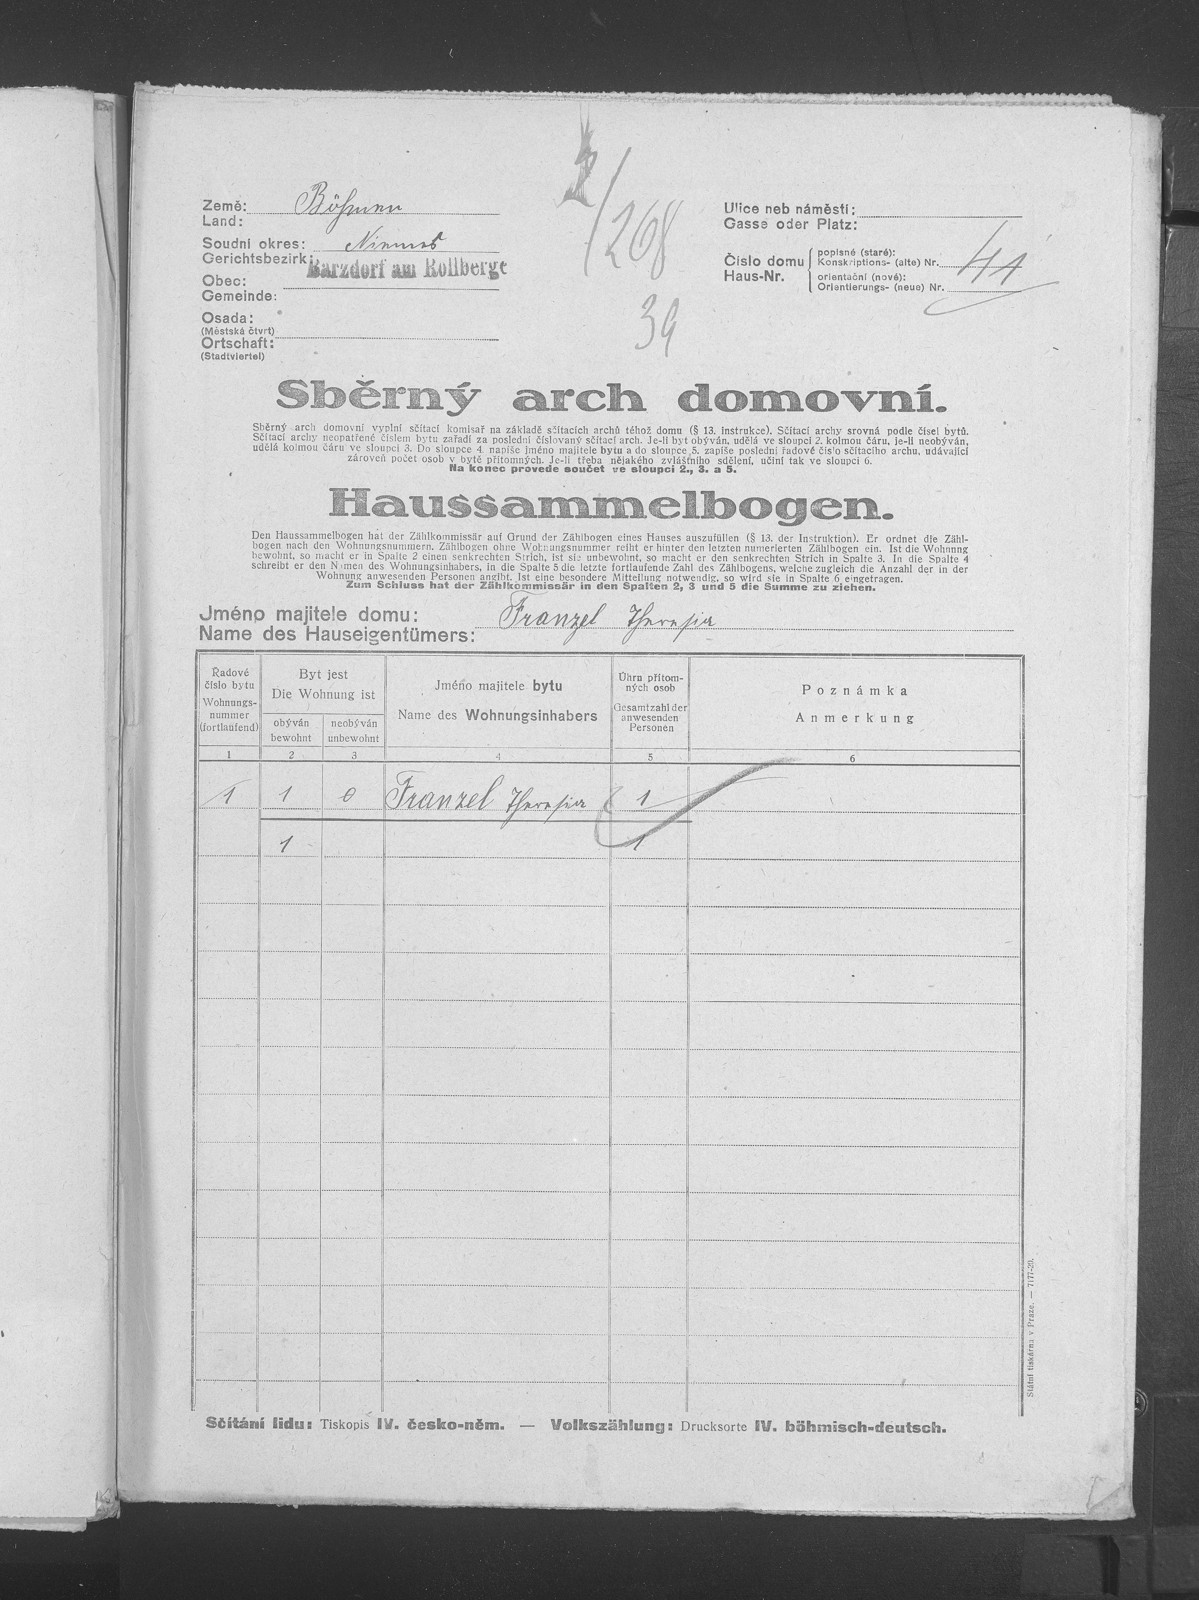 2/268
39
Země: Böhmen
Land:
Soudní okres: Niemes
Gerichtsbezirk:
Barzdorf am Rollberge
Obec:
Gemeinde:
Osada:
(Městská čtvrt)
Ortschaft:
(Stadtviertel)
Ulice neb náměstí:
Gasse oder Platz:
Číslo domu
Haus-Nr.
popisné (staré):
Konskriptions- (alte) Nr. 41
orientační (nové):
Orientierungs- (neue) Nr.
Sběrný arch domovní.
Sběrný arch domovní vyplní sčítací komisař na základě sčítacích archů téhož domu (§ 13. instrukce). Sčítací archy srovná podle čísel bytů.
Sčítací archy neopatřené číslem bytu zařadí za poslední číslovaný sčítací arch. Je-li byt obýván, udělá ve sloupci 2. kolmou čáru, je-li neobýván,
udělá kolmou čáru ve sloupci 3. Do sloupce 4. napíše jméno majitele bytu a do sloupce 5. zapíše poslední řadové číslo sčítacího archu, udávající
zároveň počet osob v bytě přítomných. Je-li třeba nějakého zvláštního sdělení, učiní tak ve sloupci 6.
Na konec provede součet ve sloupci 2., 3. a 5.
Haussammelbogen.
Den Haussammelbogen hat der Zählkommissär auf Grund der Zählbogen eines Hauses auszufüllen (§ 13. der Instruktion). Er ordnet die Zähl-
bogen nach den Wohnungsnummern. Zählbogen ohne Wohnungsnummer reiht er hinter den letzten numerierten Zählbogen ein. Ist die Wohnung
bewohnt, so macht er in Spalte 2 einen senkrechten Strich, ist sie unbewohnt, so macht er den senkrechten Strich in Spalte 3. In die Spalte 4
schreibt er den Namen des Wohnungsinhabers, in die Spalte 5 die letzte fortlaufende Zahl des Zählbogens, welche zugleich die Anzahl der in der
Wohnung anwesenden Personen angibt. Ist eine besondere Mitteilung notwendig, so wird sie in Spalte 6 eingetragen.
Zum Schluss hat der Zählkommissär in den Spalten 2, 3 und 5 die Summe zu ziehen.
Jméno majitele domu: Franzel Theresia
Name des Hauseigentümers:
Řadové číslo bytu
Wohnungs-nummer (fortlaufend)
Byt jest
Die Wohnung ist
obýván
bewohnt
neobýván
unbewohnt
Jméno majitele bytu
Name des Wohnungsinhabers
Úhrn přítom-ných osob
Gesamtzahl der anwesenden Personen
Poznámka
Anmerkung
1 2 3 4 5 6
1 1 0 Franzel Theresia 1
1 1
Sčítání lidu: Tiskopis IV. česko-něm. — Volkszählung: Drucksorte IV. böhmisch-deutsch.
Státní tiskárna v Praze. — 7177-20.